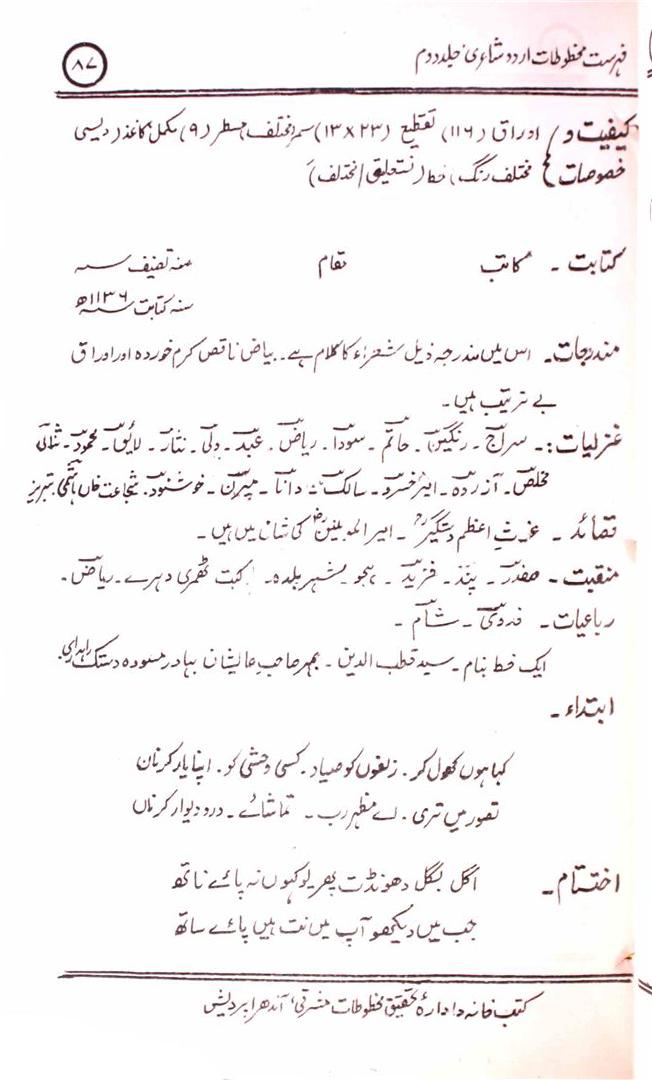 فہرست مخطوطات اردو شاعری جلد دوم
۸۷
کیفیت و / اوراق (۱۱۶) تقطیع (۲۳×۱۳) سمر مختلف، مسطر (۹) مکمل کاغذ (دیسی
خصوصات { مختلف رنگ) خط (نستعلیق/مختلف)
کتابت ۔ کاتب مقام سنہ تصنیف سـہ
سنہ کتابت ۱۱۳۶ھ
مندرجات۔ اس میں مندرجہ ذیل شعراء کا کلام ہے۔ بیاض ناقص کرم خوردہ اور اوراق
بے ترتیب ہیں۔
غزلیات :۔ سراج ۔ رنگین ۔ حاتم ۔ سودا ۔ ریاض ۔ عبد ۔ ولی ۔ نثار ۔ لائق ۔ محمود ۔ ثنائی
مخلص ۔ آزردہ ۔ امیر خسرو ۔ سالک ۔ دانا ۔ میرن ۔ خوشنود ۔ شجاعت خاں ہاتفی ، تبریز
قصائد ۔ غوث اعظم دستگیرؒ ۔ امیر المومنینؓ کی شان میں ہیں ۔
منقبت ۔ صفدر ۔ پند ۔ فرید ۔ ہجو ۔ شہر بلدہ ۔ کبت ٹھمری دہرے ۔ ریاض ۔
رباعیات ۔ فدوی ۔ شام ۔
ایک خط بنام ۔ سید قطب الدین ۔ بمہر صاحب عالیشان بہادر مسودہ دستک راہداری.
ابتداء ۔
کہا ہوں کھول کر . زلفوں کو صیاد . کسی وحشی کو . اپنا یار کرناں
تصور میں تری . اے مظہر رب ۔ تماشائے ۔ درو دیوار کرناں
اختتام ۔ اگل بگل دھونڈت پھریو کہوں نہ پائے ناتھ
جب میں دیکھو آپ میں نت ہیں پائے ساتھ
کتب خانہ و ادارۂ تحقیق مخطوطات مشرقی، آندھرا پردیش